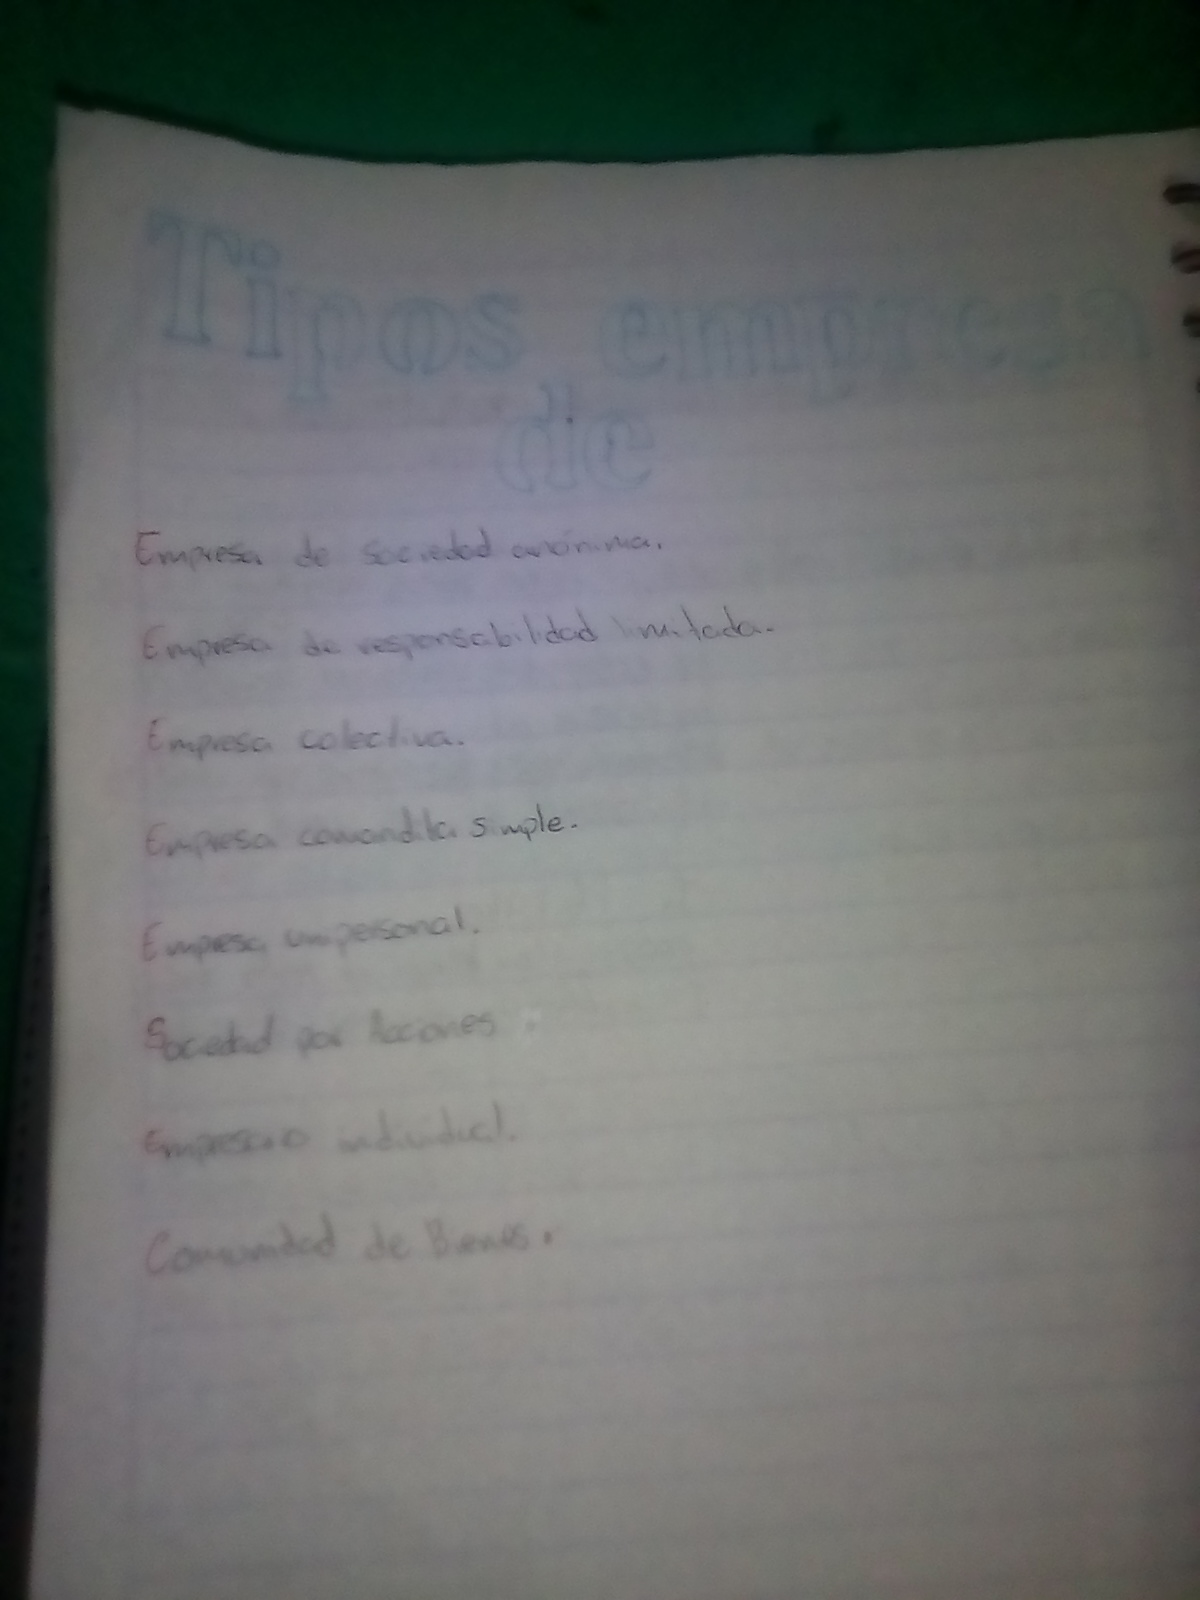 Tipos empresa
de
Empresa de sociedad anónima.
Empresa de responsabilidad limitada.
Empresa colectiva.
Empresa comandita simple.
Empresa unipersonal.
Sociedad por Acciones.
Empresario individual.
Comunidad de Bienes.